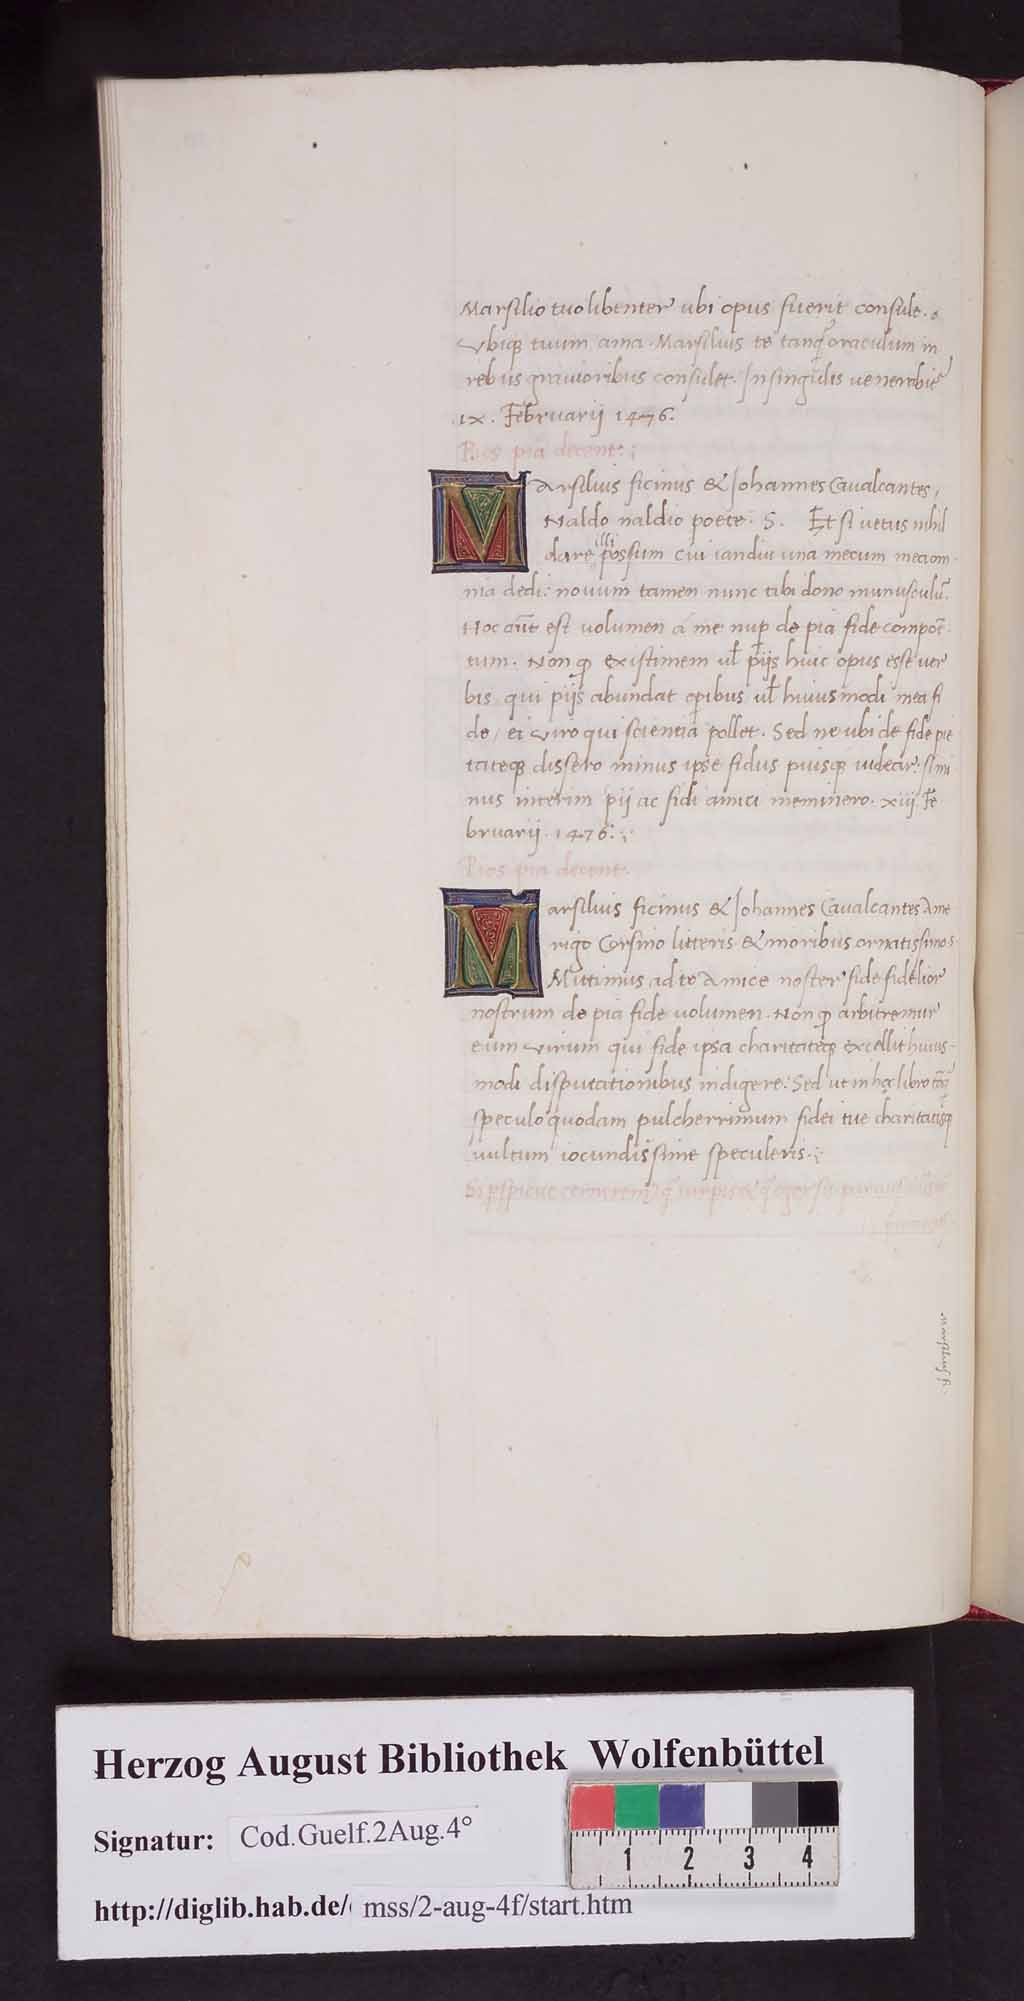 Marsilio tuo libenter ubi opus fuerit consule. &
Vbiqꝫ tuum ama. Marsilius te tanqꝫ oraculum in
rebus gravioribus consulet. In singulis venerabit᷑
.ix. Februarij 1476.
Pios pia decent:
Marsilius ficinus & Johannes Cavalcantes,
Naldo naldio poete. S. Et si vetus nihil
dare illi possum cui iandiu una mecum mea om-
nia dedi: novum tamen nunc tibi dono munusculū.
Hoc aūt est volumen á me nup̱ de pia fide compos̄i-
tum. Non q̱ existimem ul̄ pijs huic opus esse ver
bis, qui pijs abundat op̱ibus, ul̄ huiusmodi mea fi
de, ei viro qui scientia pollet. Sed ne ubi de fide pie
tateqꝫ dissero minus ipse fidus piusqꝫ videar: si mi
nus interim pij ac fidi amici meminero. xiij Fe
bruarij. 1476:
Pios pia decent.
Marsilius ficinus & Johannes Cavalcantes Ame
rigo Corsino litteris & moribus ornatissimo S
Mittimus ad te Amice noster fide fidelior
nostrum de pia fide volumen. Non q̱ arbitremur
eum virum qui fide ipsa charitateqꝫ excellit huius-
modi disputationibus indigere: Sed ut in hoc libro tāqꝫ
speculo quodam pulcherrimum fidei tue charitatisqꝫ
vultum iocundissime speculeris.
Marsilius f.
Herzog August Bibliothek Wolfenbüttel
Signatur: Cod.Guelf.2Aug.4°
http://diglib.hab.de/ mss/2-aug-4f/start.htm
1 2 3 4